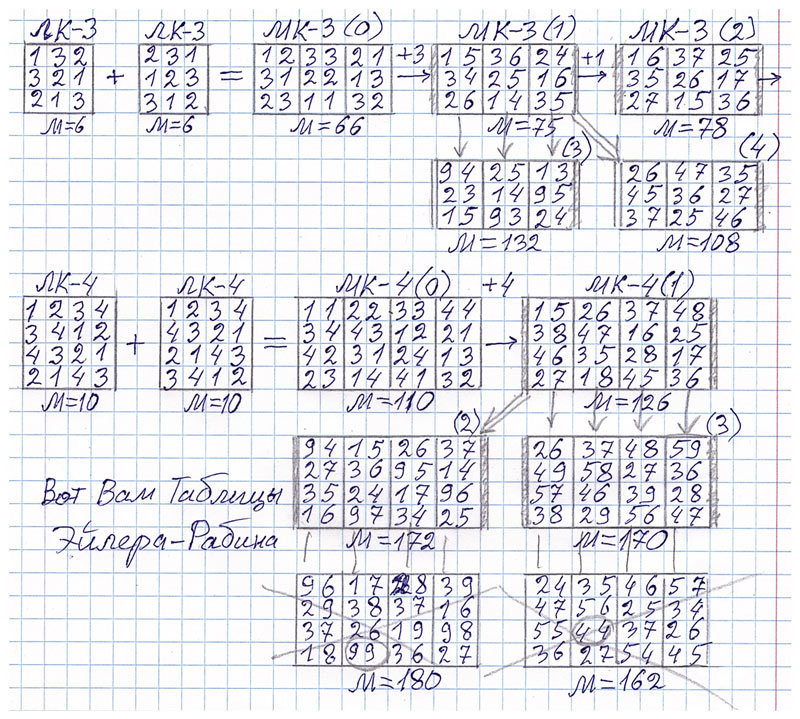 ЛК-3 ЛК-3 МК-3 (0) МК-3 (1) МК-3 (2)
1 3 2 2 3 1 12 33 21 +3 15 36 24 +1 16 37 25
3 2 1 + 1 2 3 = 31 22 13 → 34 25 16 → 35 26 17 →
2 1 3 3 1 2 23 11 32 26 14 35 27 15 36
М=6 М=6 М=66 М=75 М=78
(3) (4)
94 25 13 26 47 35
23 14 95 45 36 27
15 93 24 37 25 46
М=132 М=108
ЛК-4 ЛК-4 МК-4(0) +4 МК-4(1)
1 2 3 4 1 2 3 4 11 22 33 44 15 26 37 48
3 4 1 2 + 4 3 2 1 = 34 43 12 21 → 38 47 16 25
4 3 2 1 2 1 4 3 42 31 24 13 46 35 28 17
2 1 4 3 3 4 1 2 23 14 41 32 27 18 45 36
М=10 М=10 М=110 М=126
(2) (3)
94 15 26 37 26 37 48 59
27 36 95 14 49 58 27 36
35 24 17 96 57 46 39 28
16 97 34 25 38 29 56 47
Вот Вам Таблицы
Эйлера-Рабина
М=172 М=170
96 17 28 39 24 35 46 57
29 38 37 16 47 56 25 34
37 26 19 98 55 44 37 26
18 99 36 27 36 27 54 45
М=180 М=162